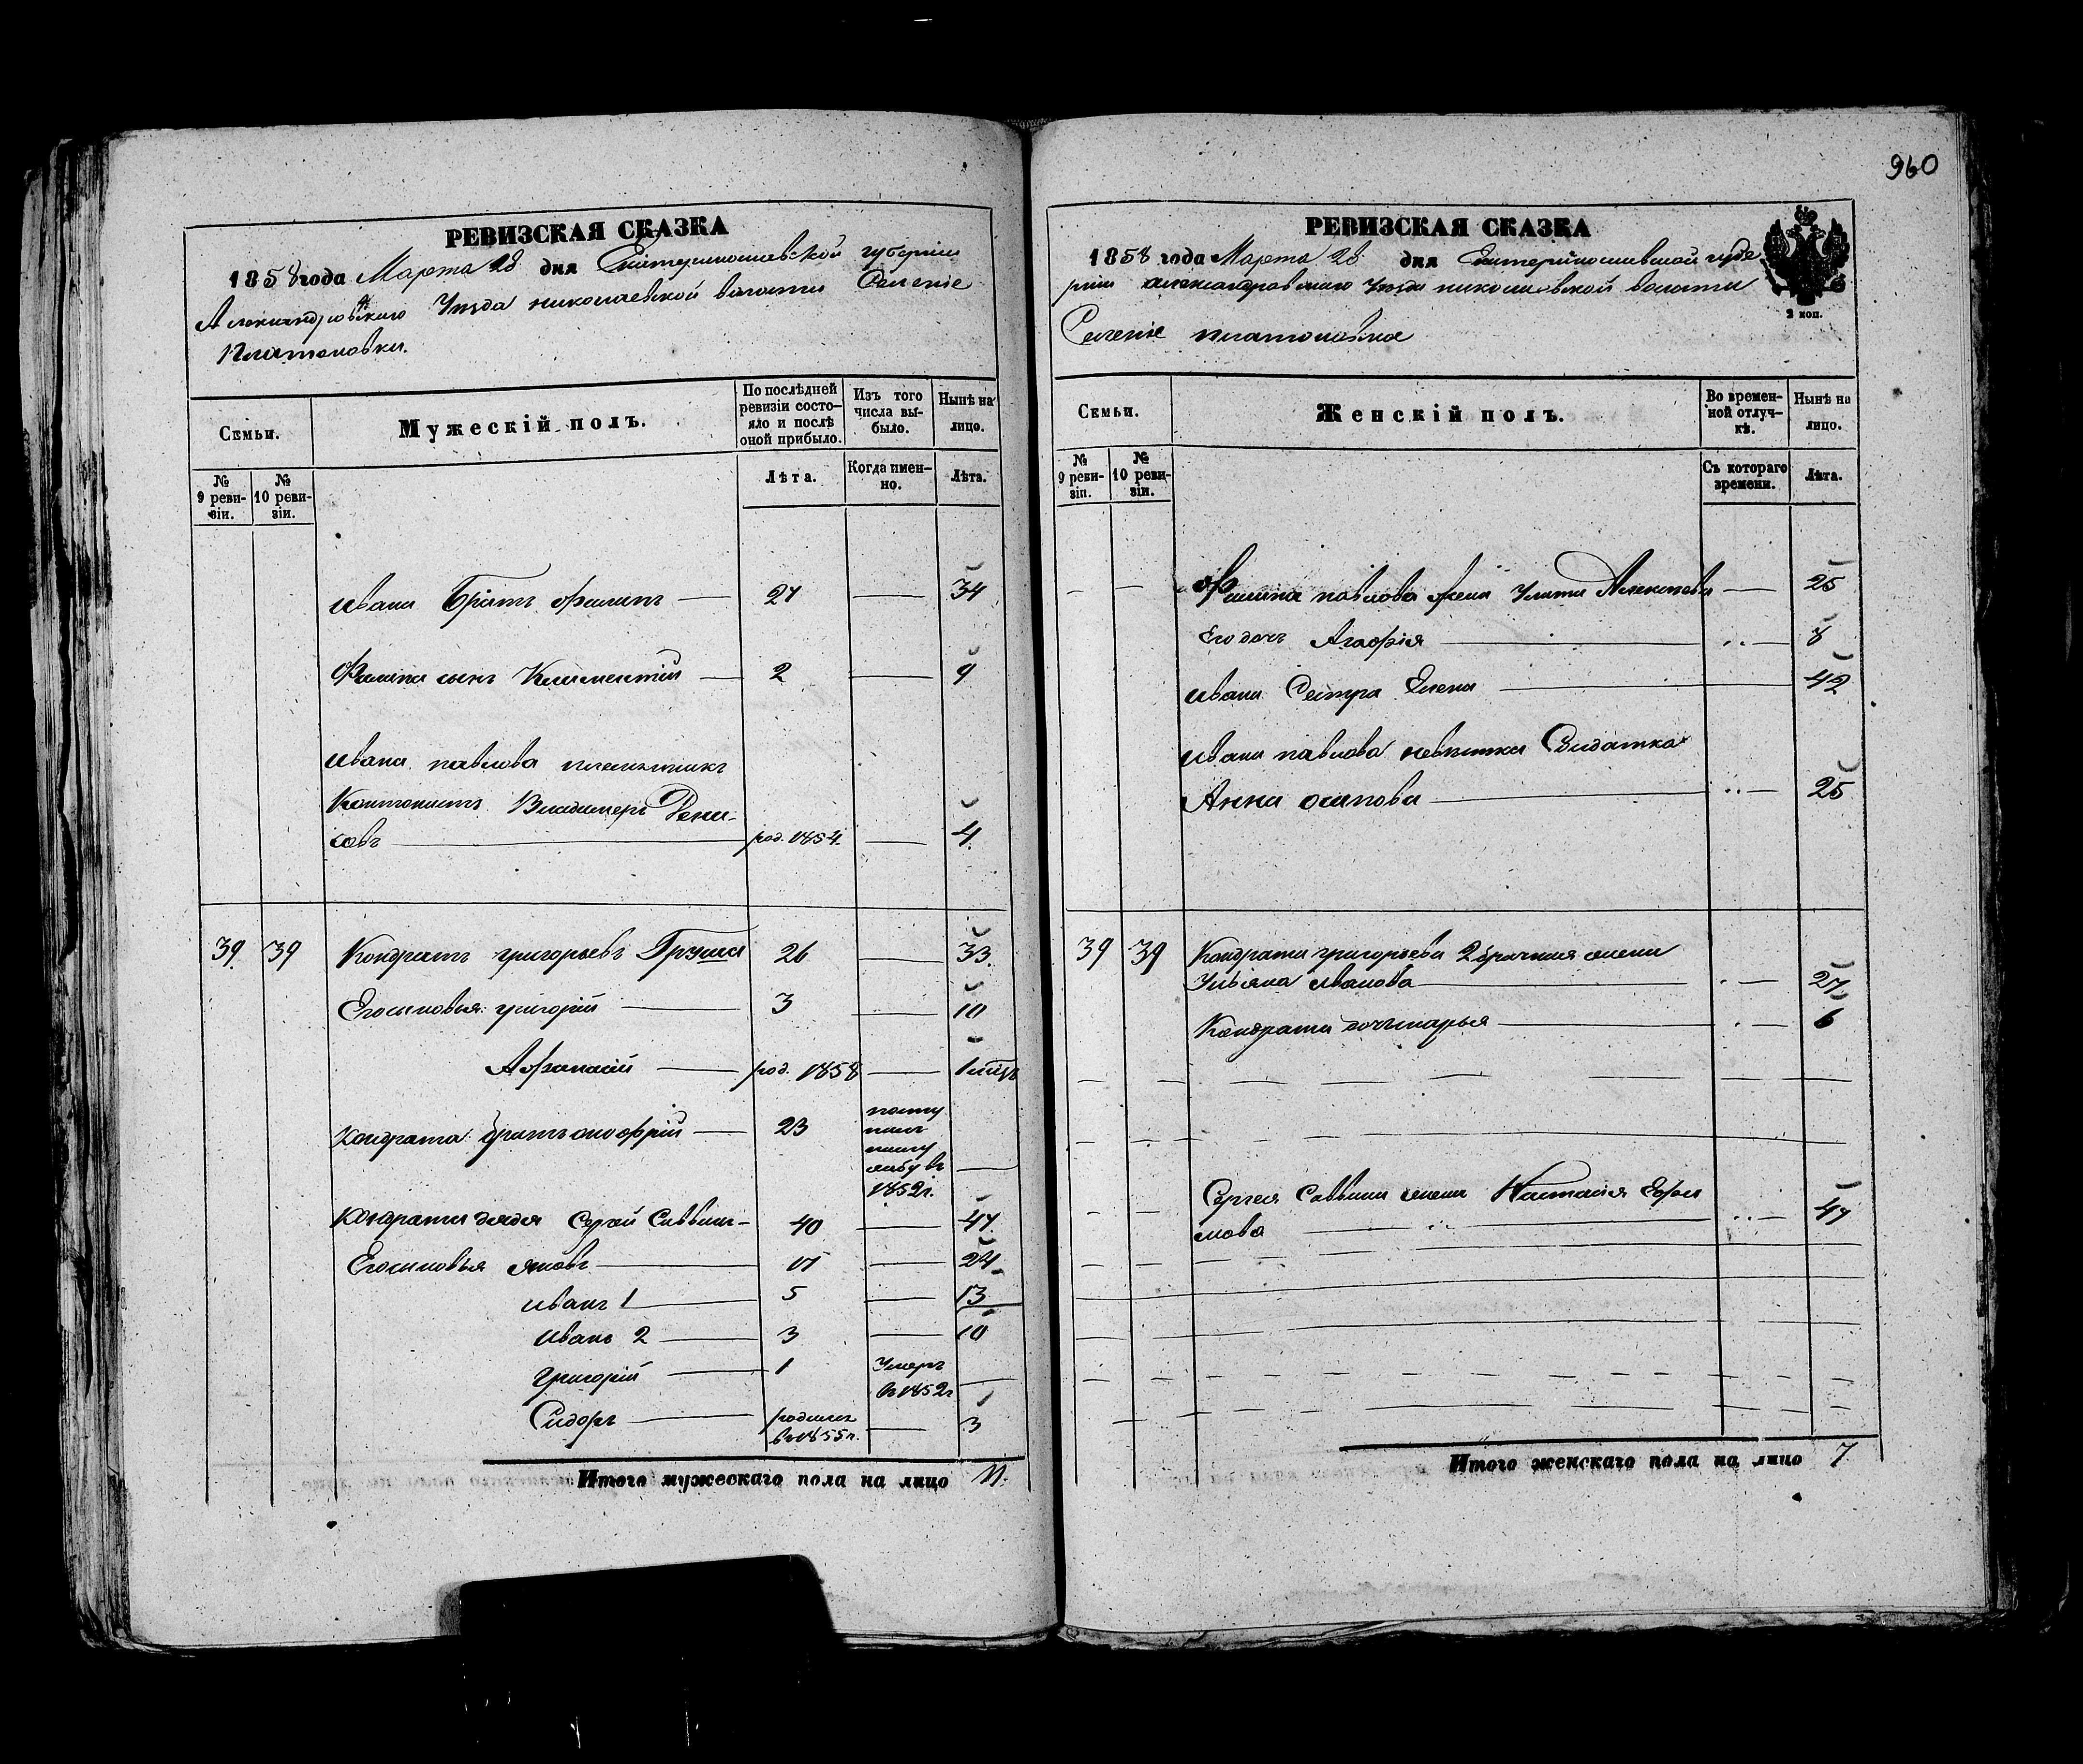 960
РЕВИЗСКАЯ СКАЗКА
1858 года Марта 28 дня Екатеринославской губернии
Александровского Уезда николаевской волости Селение
Платоновки.
Семьи.
Мужескій полъ.
По послѣдней ревизіи состо-
яло и послѣ оной прибыло.
Изъ того числа вы-
было.
Нынѣ на лицо.
№ 9 реви-
зіи.
№ 10 реви-
зіи.
Лѣта.
Когда имен-
но.
Лѣта.
Ивана Братъ Филипъ 27 — 34
Филипа сынъ Климентий 2 — 9
Ивана павлова племянникъ
Кантонистъ Владимеръ Дени-
совъ род. 1854. — 4.
39. 39 Кондратъ григорьевъ Груша 26 — 33.
Его сыновья: григорій 3 — 10
Афанасій род. 1858 — 1 мѣц
Кондрата братъ оноофрій 23 1852 г.
Кондрата дядя Сергей Саввин- 40 — 47.
Его сыновья яковъ 17 — 24
Иванъ 1 5 — 13
Иванъ 2 3 — 10
григорій 1 Умеръ
въ 1852 г —
Сидоръ родился
въ 1855 г. — 3
Итого мужескаго пола на лицо 11.
РЕВИЗСКАЯ СКАЗКА
1858 года Марта 28 дня Екатеринославской губе
рнии александровского Уезда николаевской волости
Селение платоновка
2 коп.
Семьи.
Женскій полъ.
Во времен-
ной отлуч-
кѣ.
Нынѣ на лицо.
№ 9 реви-
зіи.
№ 10 реви-
зіи.
Съ котораго времени.
Лѣта.
Филипа павлова жена Улита Алексеева — 25
Его дочь Агафія 8
Ивана Сестра Елена 42
Ивана павлова невестка Салдатка
Анна осипова 25
39 39 Кондрата григорьева 2 брачная жена
Ульяна Иванова 27
Кондрата дочь марья 6
Сергея Саввина жена Настасія Ефи
мова 47
Итого женскаго пола на лицо 7